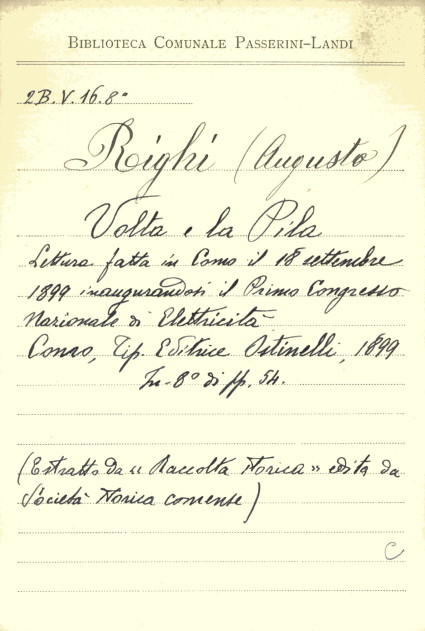 BIBLIOTECA COMUNALE PASSERINI-LANDI
2B.V.16.8°
Righi (Augusto)
Volta e la Pila
Lettura fatta in Como il 18 settembre
1899 inaugurandosi il Primo Congresso
Nazionale di Elettricità
Como, Tip. Editrice Ostinelli, 1899
In-8° di pp. 54.
(Estratto da « Raccolta Storica » edita da
Società Storica comense)
C